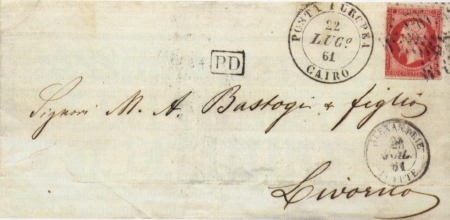 POSTA EUROPEA
22
LUGº
61
CAIRO
PD
Signori M. A. Bastogi & figlio
ALEXANDRIE
JUIL.
61
Livorno